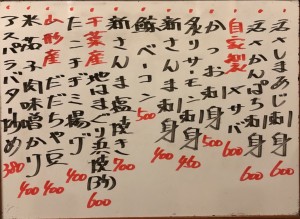 活〆さしまあじ刺 600
活〆かんぱち刺 600
自家製 〆サバ 500
かつお刺身 460
新さんま刺身 400
炙サーモン刺身 500
鯨ベーコン
新さんま塩焼き 700
千葉産 地はまぐり浜焼(3ケ) 600
たこキムチ 400
山形産 だだちゃ豆 400
米茄子肉味噌かけ 400
アスパラバター炒め 380